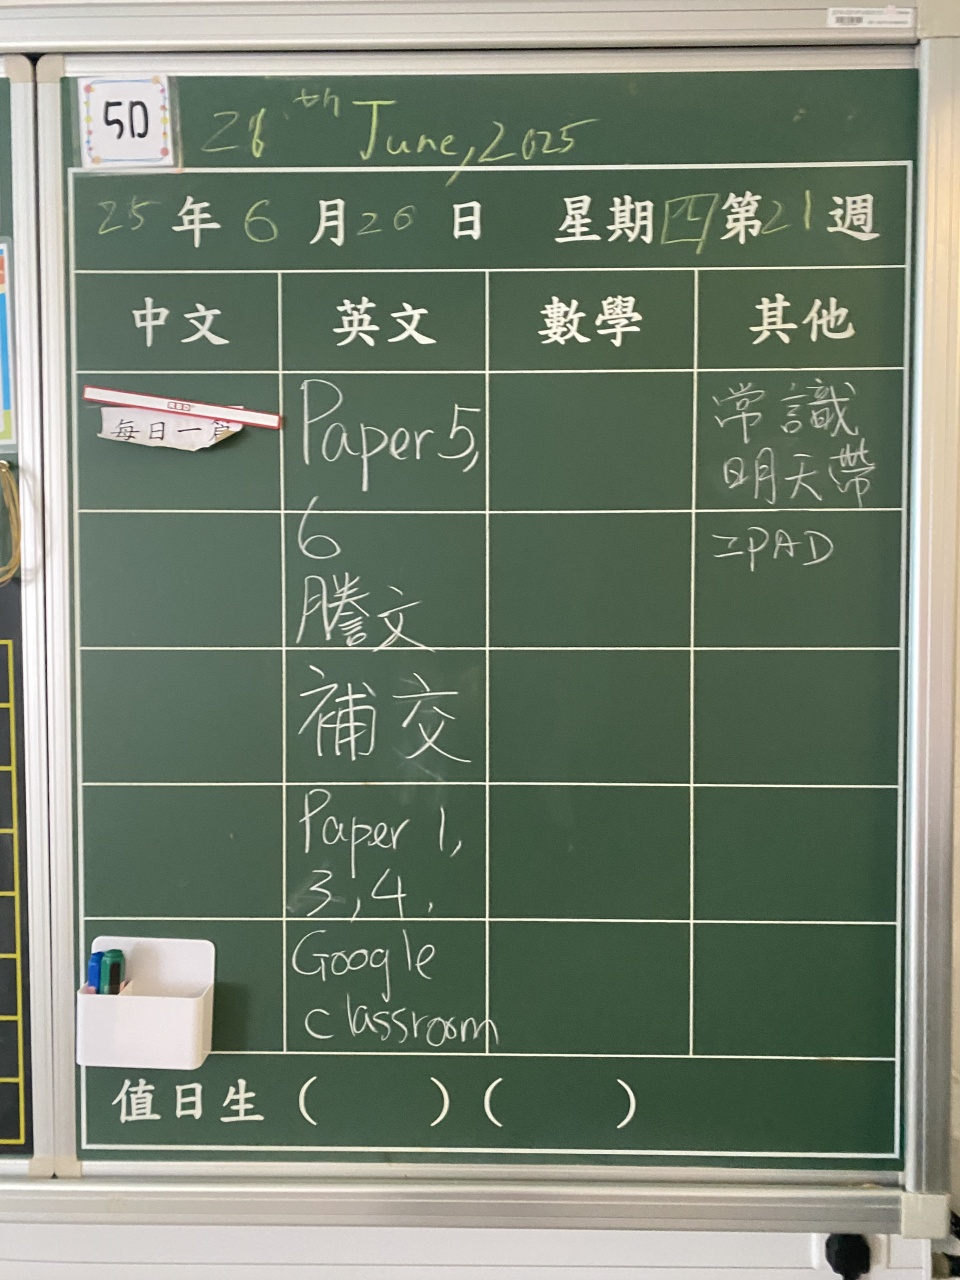 5D
26th June, 2025
25年6月26日 星期四第21週
中文 英文 數學 其他
每日一篇
Paper 5,
6
謄文
補交
Paper 1,
3, 4,
Google
classroom
常識
明天帶
IPAD
值日生 (    ) (    )